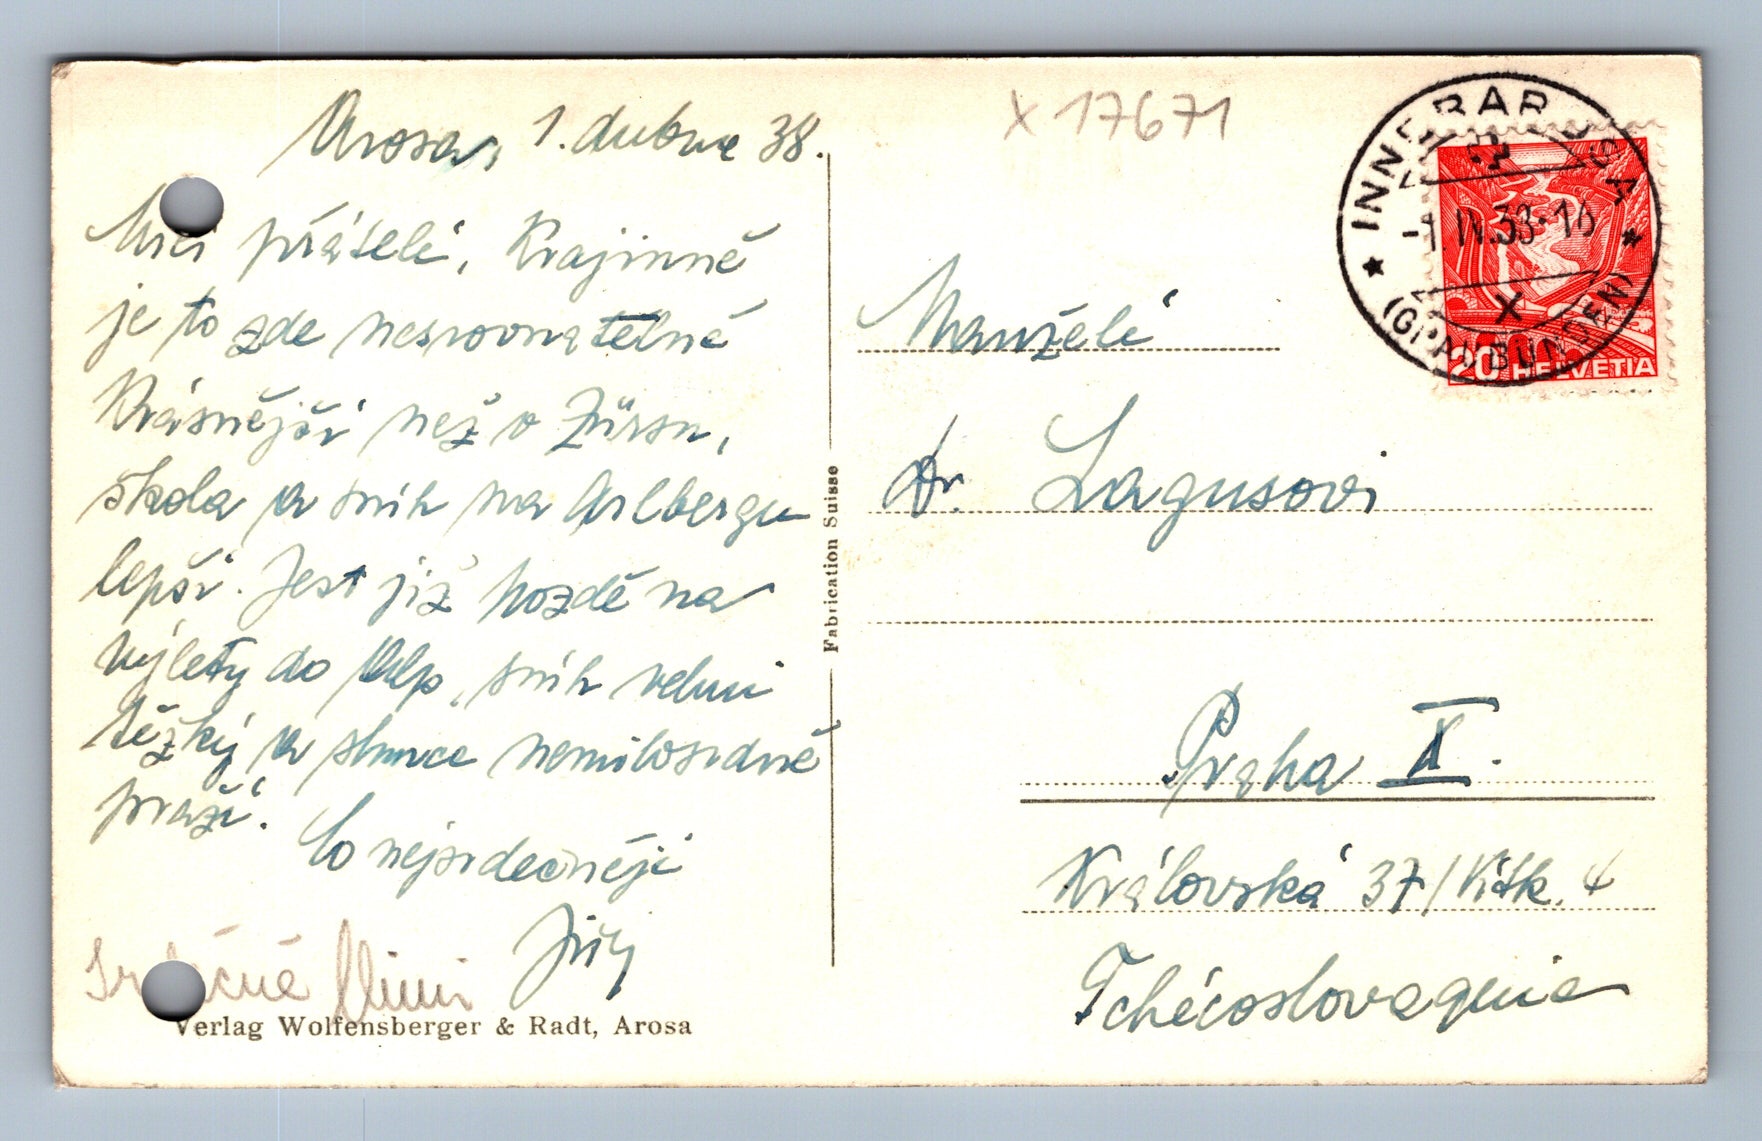 Arosa, 1. dubna 38.
Milí přátelé, Krajinně
je to zde nesrovnatelně
Krásnější než v Zürsu,
škola a sníh na Arlbergu
lepší. Jest již pozdě na
výlety do Alp, sníh velmi
těžký a slunce nemilosrdně
praží.
Co nejsrdečněji
Jiří
Srdečně Mimi
Verlag Wolfensberger & Radt, Arosa
Fabrication Suisse
X 17671
INNERAROSA
-1.IV.38-16
(GRAUBÜNDEN)
20 HELVETIA
Manželé
Dr. Lagusovi
Praha II.
Královská 37/Vítk. 4
Tchécoslovaquie